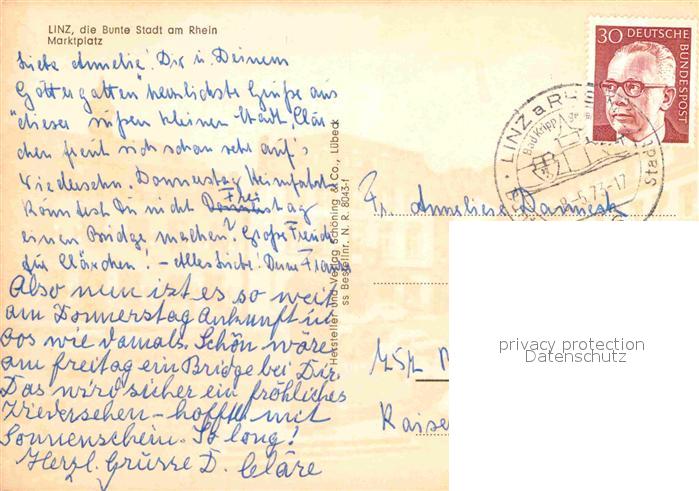 LINZ, die Bunte Stadt am Rhein
Marktplatz
Liebe Annelie! Dir u. Deinem
"Göttergatten" herzlichste Grüße aus
dieser süßen kleinen Stadt. Clär-
chen freut sich schon sehr auf's
Wiedersehn. Donnerstag Heimfahrt.
Könntest Du nicht Freitag
einen Bridge machen? Große Freude
für Clärchen! - Alles Liebe! Deine
Also nun ist es so weit
am Donnerstag Ankunft
wie damals. Schön wäre
am freitag ein Bridge bei Dir.
Das wird sicher ein fröhliches
Wiedersehen - hofftl. mit
Sonnenschein. So long!
Herzl. Grüsse D. Cläre
Hersteller und Verlag Schöning & Co., Lübeck
ss Bestellnr. N. R. 8043-f
30 DEUTSCHE
BUNDESPOST
LINZ a RH
Bad Kripp
73-17
Fr. Anneliese
Kaise
privacy protection
Datenschutz